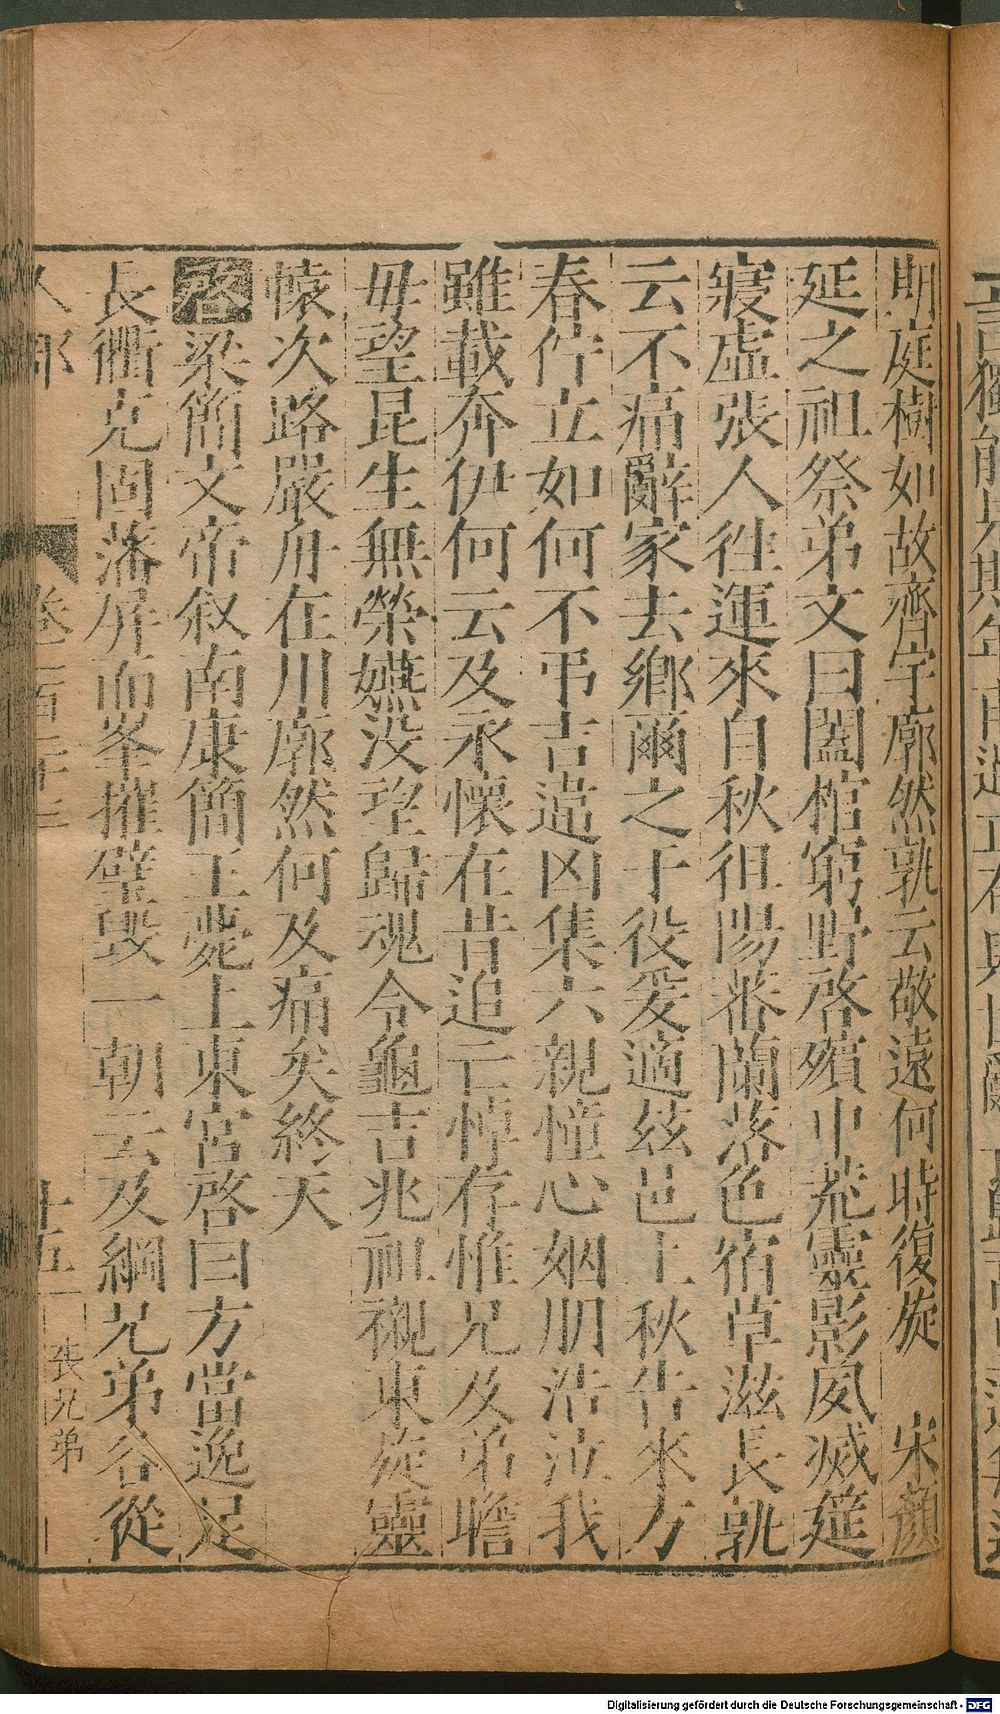 期庭樹如故齊宇廓然孰云敬遠何時復旋　宋顏
延之祖祭弟文曰闔棺窮野啓殯中荒靈影夙滅筵
寢虛張人徃運來自秋徂陽蕃蘭落色宿草滋長孰
云不痛辭家去鄉爾之于役爰適兹邑上秋告來方
春佇立如何不弔吉違凶集六親憧心姻朋浩泣我
雖載奔伊何云及永懷在昔追亡悼存惟兄及弟瞻
毋望昆生無榮嬿没望歸魂令龜吉兆祖櫬東旋靈
轅次路嚴舟在川廓然何及痛矣終天
啓梁簡文帝叙南康簡王薨上東宮啓曰方當逸足
長衢克固藩屏而峯摧璧毁一朝云及綱兄弟各從
人部
卷二百二十七
十五
喪兄弟
Digitalisierung gefördert durch die Deutsche Forschungsgemeinschaft - DFG